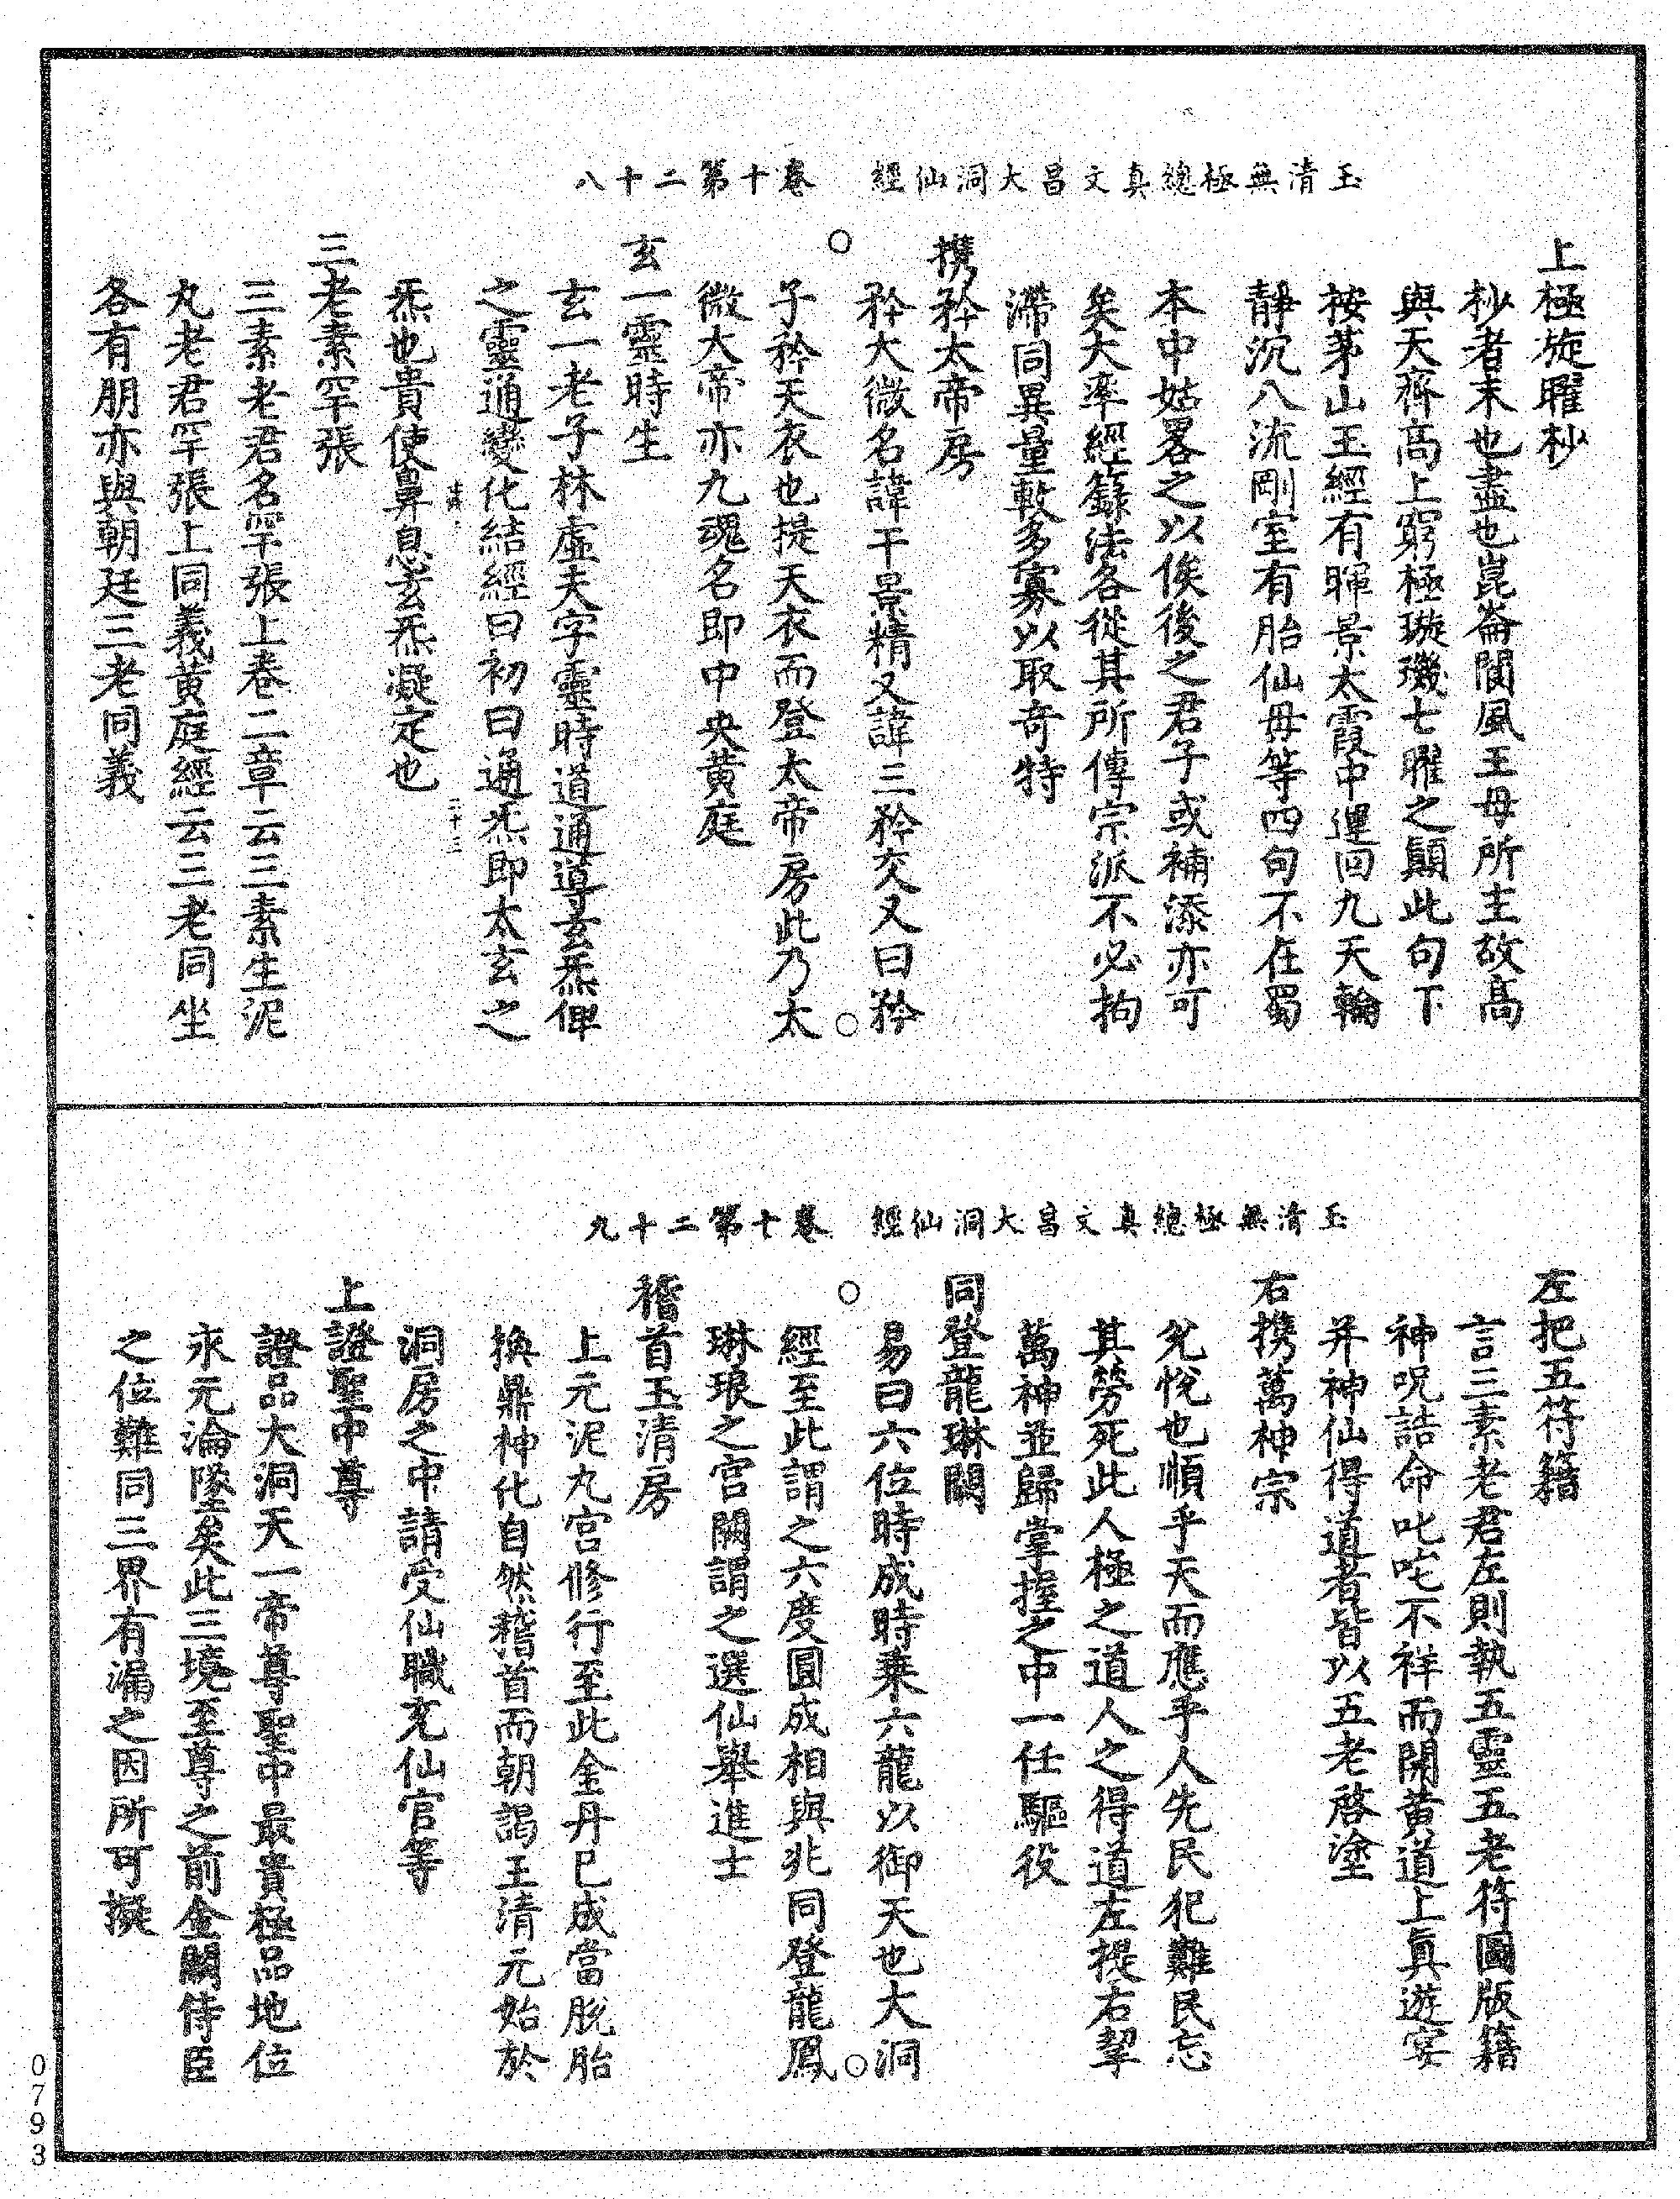 玉清無極總真文昌大洞仙經　卷十第二十八
上極旋曜杪
杪者末也盡也崑崙閬風王母所主故高
與天齊高上窮極璇璣七曜之顛此句下
桉茅山玉經有暉景太霞中運回九天輪
靜沉八流剛室有胎仙毋等四句不在蜀
本中姑畧之以俟後之君子或補添亦可
矣大率經籙法各從其所傳宗派不必拘
滯同異量較多寡以取奇特
携矜太帝房
矜大微名諱干景精又諱三矜交又曰矜
子矜天衣也提天衣而登太帝房此乃太
微大帝亦九魂名即中央黄庭
玄一靈時生
玄一老子林虛夫字靈時道通導玄炁俾
之靈通變化結經曰初曰通炁即太玄之
二十三
炁也貴使鼻息玄炁凝定也
三老素罕張
三素老君名罕張上卷二章云三素生泥
丸老君罕張上同義黄庭經云三老同坐
各有朋亦與朝廷三老同義
玉清無極總真文昌大洞仙經　卷十第二十九
左把五符籍
言三素老君左則執五靈五老符圖版籍
神呪誥命叱咤不祥而開黄道上真遊宴
并神仙得道者皆以五老啓塗
右携萬神宗
兊悅也順乎天而應乎人先民犯難民忘
其勞死此人極之道人之得道左提右挈
萬神並歸掌握之中一任驅役
同登龍琳闕
易曰六位時成時乗六龍以御天也大洞
經至此謂之六度圓成相與兆同登龍鳳
琳琅之宫闕謂之選仙舉進士
稽首玉清房
上元泥丸宫修行至此金丹已成當脫胎
換鼎神化自然稽首而朝謁王清元始於
洞房之中請受仙職充仙官等
上證聖中尊
證品大洞天一帝尊聖中最貴極品地位
永元淪墜矣此三境至尊之前金闕侍臣
之位難同三界有漏之因所可擬
0793